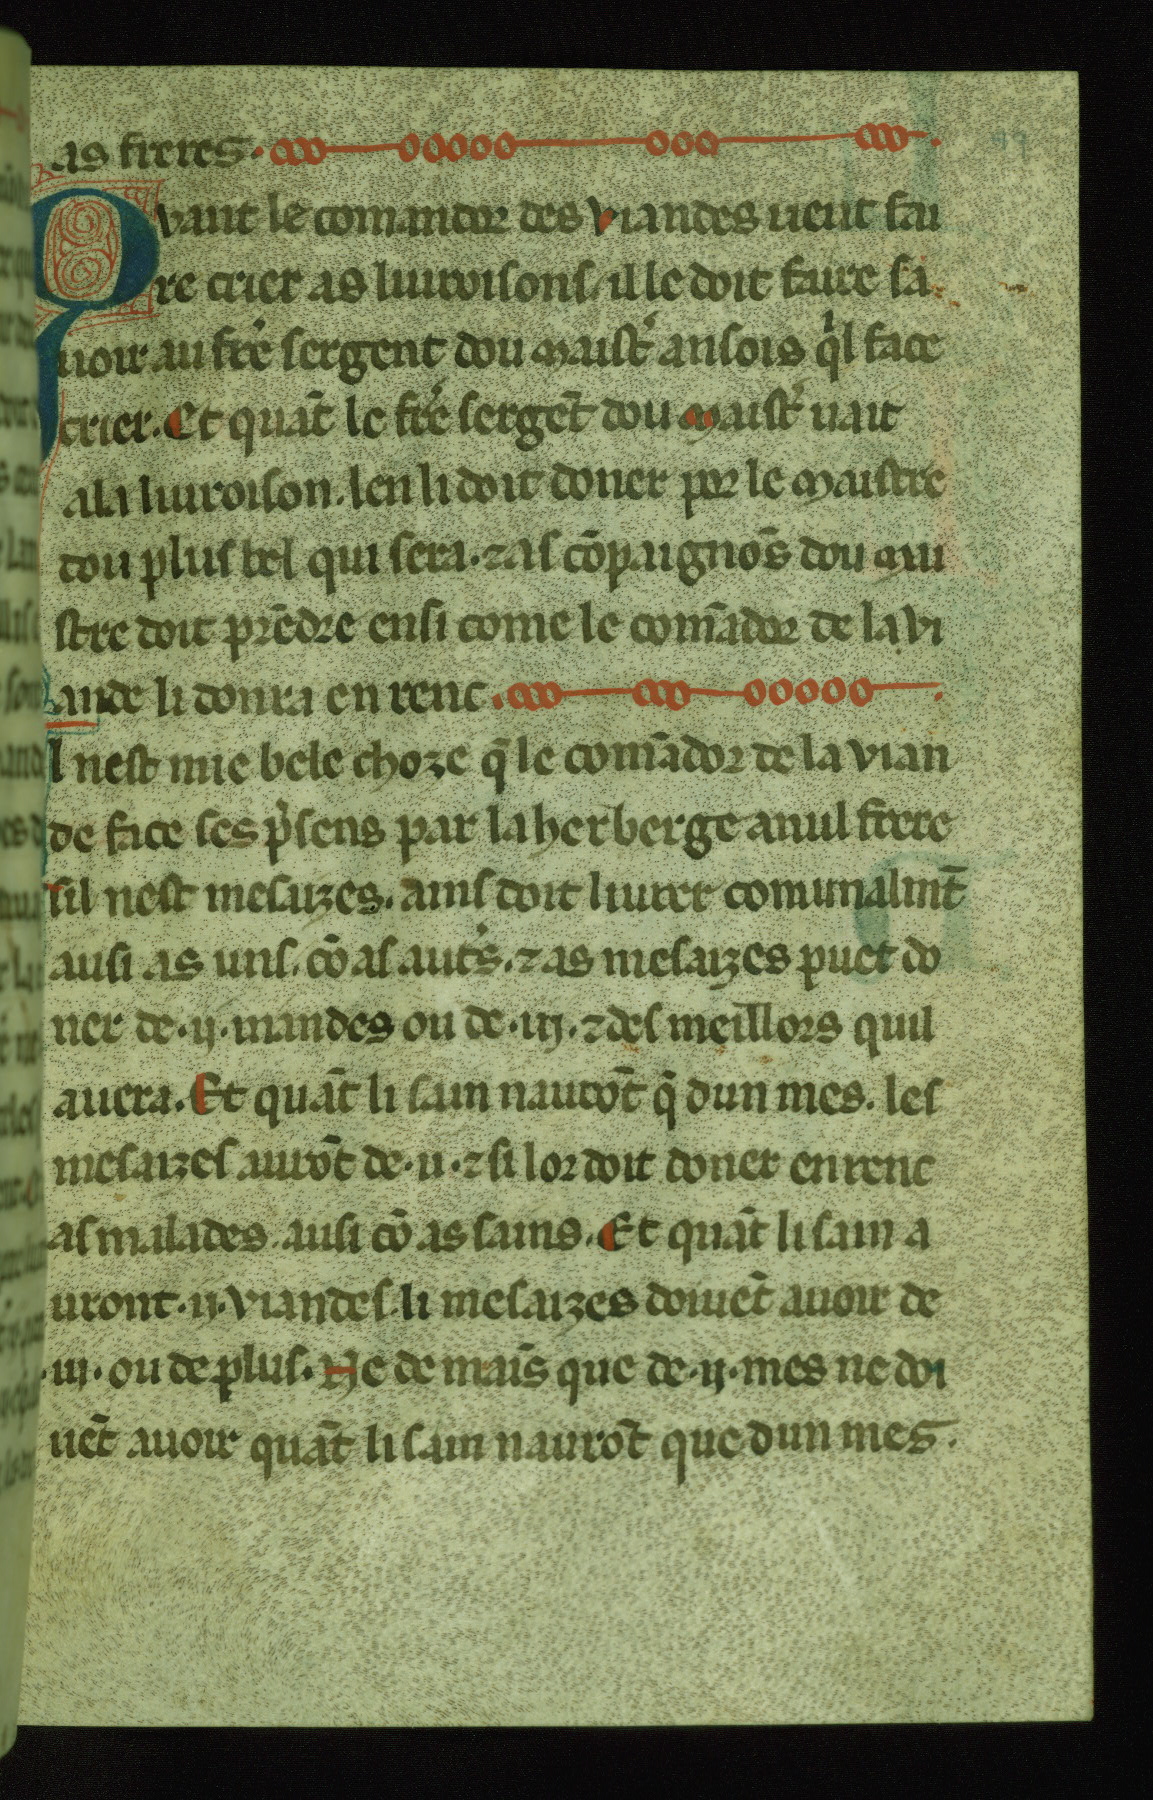 as freres.
Quant le comandor des viandes vieut fai
re crier as livroisons. il le doit faire sa
voir au fre sergent dou maistr ansois ql face
crier. Et quāt le fre sergēt dou maistr vait
a la livroison. len li doit doner por le maistre
dou plus bel qui sera. ⁊ as cōpaignōs dou mai
stre doit prēdre ensi come le comādor de la vi
ande li donra en renc.
Il nest mie bele choze q̄ le comādor de la vian
de face ses psens par la herberge a nul frere
sil nest mesaizes. ains doit livrer comunalmt̄
ausi as uns. cō as autrs. ⁊ as mesaizes puet do
ner de .ij. viandes ou de .iij. ⁊ des meillors quil
avera. Et quāt li sain navrōt q̄ dun mes. les
mesaizes avrōt de .ii. ⁊ si lor doit doner en renc
as malades. ausi cō as sains. Et quāt li sain a
vront .ii. viandes. li mesaizes doivēt avoir de
.iii. ou de plus. Ne de mains que de .ij. mes ne doi
vēt avoir quāt li sain navrōt que dun mes.